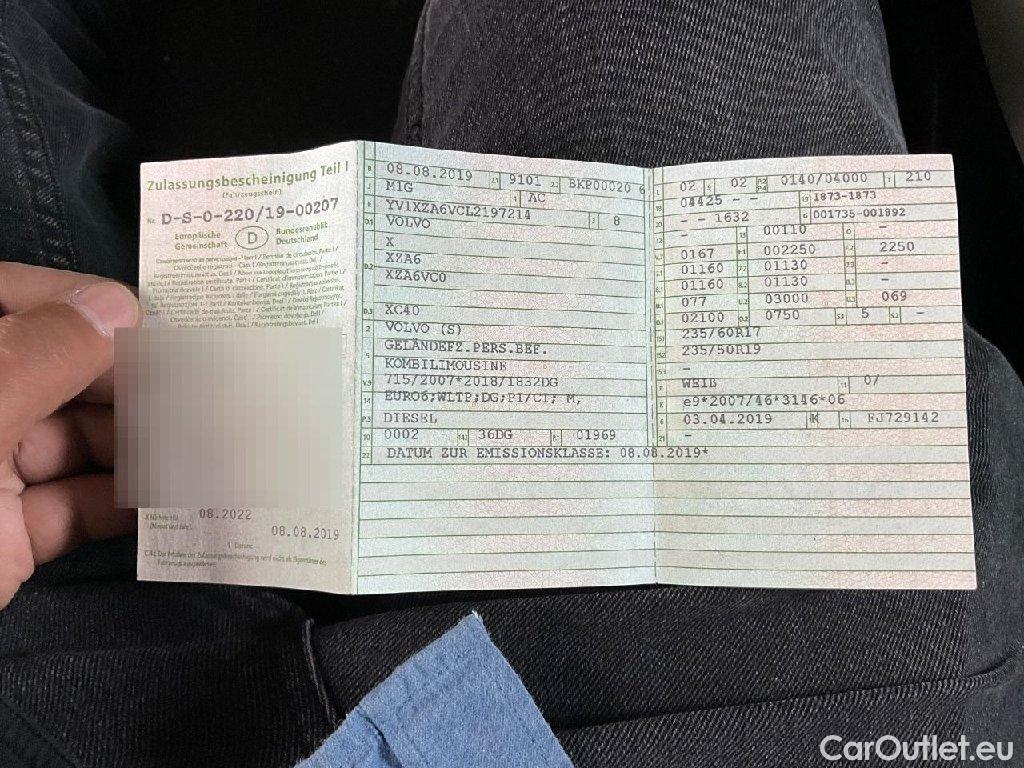 Zulassungsbescheinigung Teil I
(Fahrzeugschein)
Nr. D-S-0-220/19-00207
Europäische Gemeinschaft
D
Bundesrepublik Deutschland
08.2022
08.08.2019
B 08.08.2019 2.1 9101 2.2 BKP00020 6
J M1G 4 AC
E YV1XZA6VCL2197214 3 8
D.1 VOLVO
D.2 X
XZA6
XZA6VC0
D.3 XC40
2 VOLVO (S)
5 GELÄNDEFZ.PERS.BEF.
KOMBILIMOUSINE
V.9 715/2007*2018/1832DG
14 EURO6;WLTP;DG;PI/CI; M,
P.3 DIESEL
10 0002 14.1 36DG P.1 01969
22 DATUM ZUR EMISSIONSKLASSE: 08.08.2019*
L 02 9 02 P.2 P.4 0140/04000 T 210
18 04425 - - 19 1873-1873
20 - - 1632 G 001735-001892
12 - 13 00110 Q -
V.7 0167 F.1 002250 F.2 2250
7.1 01160 7.2 01130 7.3 -
8.1 01160 8.2 01130 8.3 -
U.1 077 U.2 03000 U.3 069
O.1 02100 O.2 0750 S.1 5 S.2 -
15.1 235/60R17
15.2 235/50R19
15.3 -
R WEIß 11 0/
K e9*2007/46*3146*06
6 03.04.2019 17 K 16 FJ729142
21 -
CarOutlet.eu